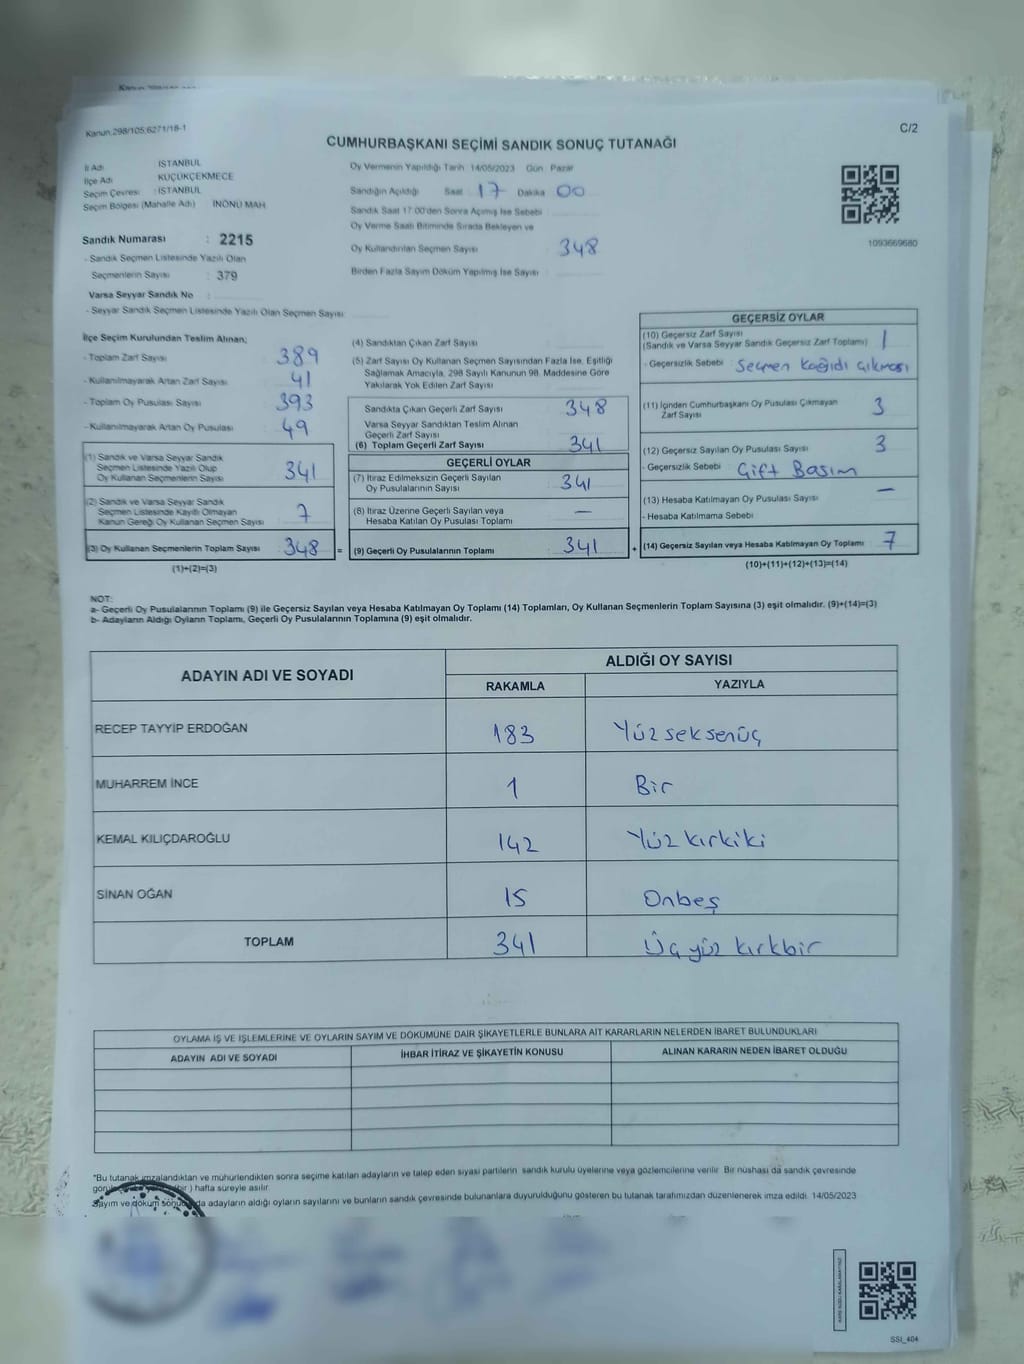 Kanun.298/105;6271/18-1
C/2
CUMHURBAŞKANI SEÇİMİ SANDIK SONUÇ TUTANAĞI
İl Adı : İSTANBUL
İlçe Adı : KÜÇÜKÇEKMECE
Seçim Çevresi : İSTANBUL
Seçim Bölgesi (Mahalle Adı) İNÖNÜ MAH
Sandık Numarası : 2215
- Sandık Seçmen Listesinde Yazılı Olan
Seçmenlerin Sayısı : 379
Varsa Seyyar Sandık No :
- Seyyar Sandık Seçmen Listesinde Yazılı Olan Seçmen Sayısı:
Oy Vermenin Yapıldığı Tarih 14/05/2023 Gün Pazar
Sandığın Açıldığı Saat 17 Dakika 00
Sandık Saat 17:00'den Sonra Açımış İse Sebebi
Oy Verme Saati Bitiminde Sırada Bekleyen ve
Oy Kullandırılan Seçmen Sayısı 348
Birden Fazla Sayım Döküm Yapılmış İse Sayısı
1093669680
İlçe Seçim Kurulundan Teslim Alınan;
- Toplam Zarf Sayısı 389
- Kullanılmayarak Artan Zarf Sayısı 41
- Toplam Oy Pusulası Sayısı 393
- Kullanılmayarak Artan Oy Pusulası 49
(1) Sandık ve Varsa Seyyar Sandık
Seçmen Listesinde Yazılı Olup
Oy Kullanan Seçmenlerin Sayısı 341
(2) Sandık ve Varsa Seyyar Sandık
Seçmen Listesinde Kayıtlı Olmayan
Kanun Gereği Oy Kullanan Seçmen Sayısı 7
(3) Oy Kullanan Seçmenlerin Toplam Sayısı 348 =
(1)+(2)=(3)
(4) Sandıktan Çıkan Zarf Sayısı
(5) Zarf Sayısı Oy Kullanan Seçmen Sayısından Fazla İse, Eşitliği
Sağlamak Amacıyla, 298 Sayılı Kanunun 98. Maddesine Göre
Yakılarak Yok Edilen Zarf Sayısı
Sandıkta Çıkan Geçerli Zarf Sayısı 348
Varsa Seyyar Sandıktan Teslim Alınan
Geçerli Zarf Sayısı
(6) Toplam Geçerli Zarf Sayısı 341
GEÇERLİ OYLAR
(7) İtiraz Edilmeksizin Geçerli Sayılan
Oy Pusulalarının Sayısı 341
(8) İtiraz Üzerine Geçerli Sayılan veya
Hesaba Katılan Oy Pusulası Toplamı —
(9) Geçerli Oy Pusulalarının Toplamı 341 +
GEÇERSİZ OYLAR
(10) Geçersiz Zarf Sayısı
(Sandık ve Varsa Seyyar Sandık Geçersiz Zarf Toplamı) 1
- Geçersizlik Sebebi Seçmen kağıdı çıkması
(11) İçinden Cumhurbaşkanı Oy Pusulası Çıkmayan
Zarf Sayısı 3
(12) Geçersiz Sayılan Oy Pusulası Sayısı 3
- Geçersizlik Sebebi Çift Basım
(13) Hesaba Katılmayan Oy Pusulası Sayısı —
- Hesaba Katılmama Sebebi
(14) Geçersiz Sayılan veya Hesaba Katılmayan Oy Toplamı 7
(10)+(11)+(12)+(13)=(14)
NOT:
a- Geçerli Oy Pusulalarının Toplamı (9) ile Geçersiz Sayılan veya Hesaba Katılmayan Oy Toplamı (14) Toplamları, Oy Kullanan Seçmenlerin Toplam Sayısına (3) eşit olmalıdır. (9)+(14)=(3)
b- Adayların Aldığı Oyların Toplamı, Geçerli Oy Pusulalarının Toplamına (9) eşit olmalıdır.
ADAYIN ADI VE SOYADI
ALDIĞI OY SAYISI
RAKAMLA YAZIYLA
RECEP TAYYİP ERDOĞAN 183 Yüz seksenüç
MUHARREM İNCE 1 Bir
KEMAL KILIÇDAROĞLU 142 Yüz kırkiki
SİNAN OĞAN 15 Onbeş
TOPLAM 341 Üçyüz kırkbir
OYLAMA İŞ VE İŞLEMLERİNE VE OYLARIN SAYIM VE DÖKÜMÜNE DAİR ŞİKAYETLERLE BUNLARA AİT KARARLARIN NELERDEN İBARET BULUNDUKLARI
ADAYIN ADI VE SOYADI İHBAR İTİRAZ VE ŞİKAYETİN KONUSU ALINAN KARARIN NEDEN İBARET OLDUĞU
*Bu tutanak imzalandıktan ve mühürlendikten sonra seçime katılan adayların ve talep eden siyasi partilerin sandık kurulu üyelerine veya gözlemcilerine verilir. Bir nüshası da sandık çevresinde
bir ) hafta süreyle asılır.
Sayım ve döküm adayların aldığı oyların sayılarını ve bunların sandık çevresinde bulunanlara duyurulduğunu gösteren bu tutanak tarafımızdan düzenlenerek imza edildi. 14/05/2023
SSI_404